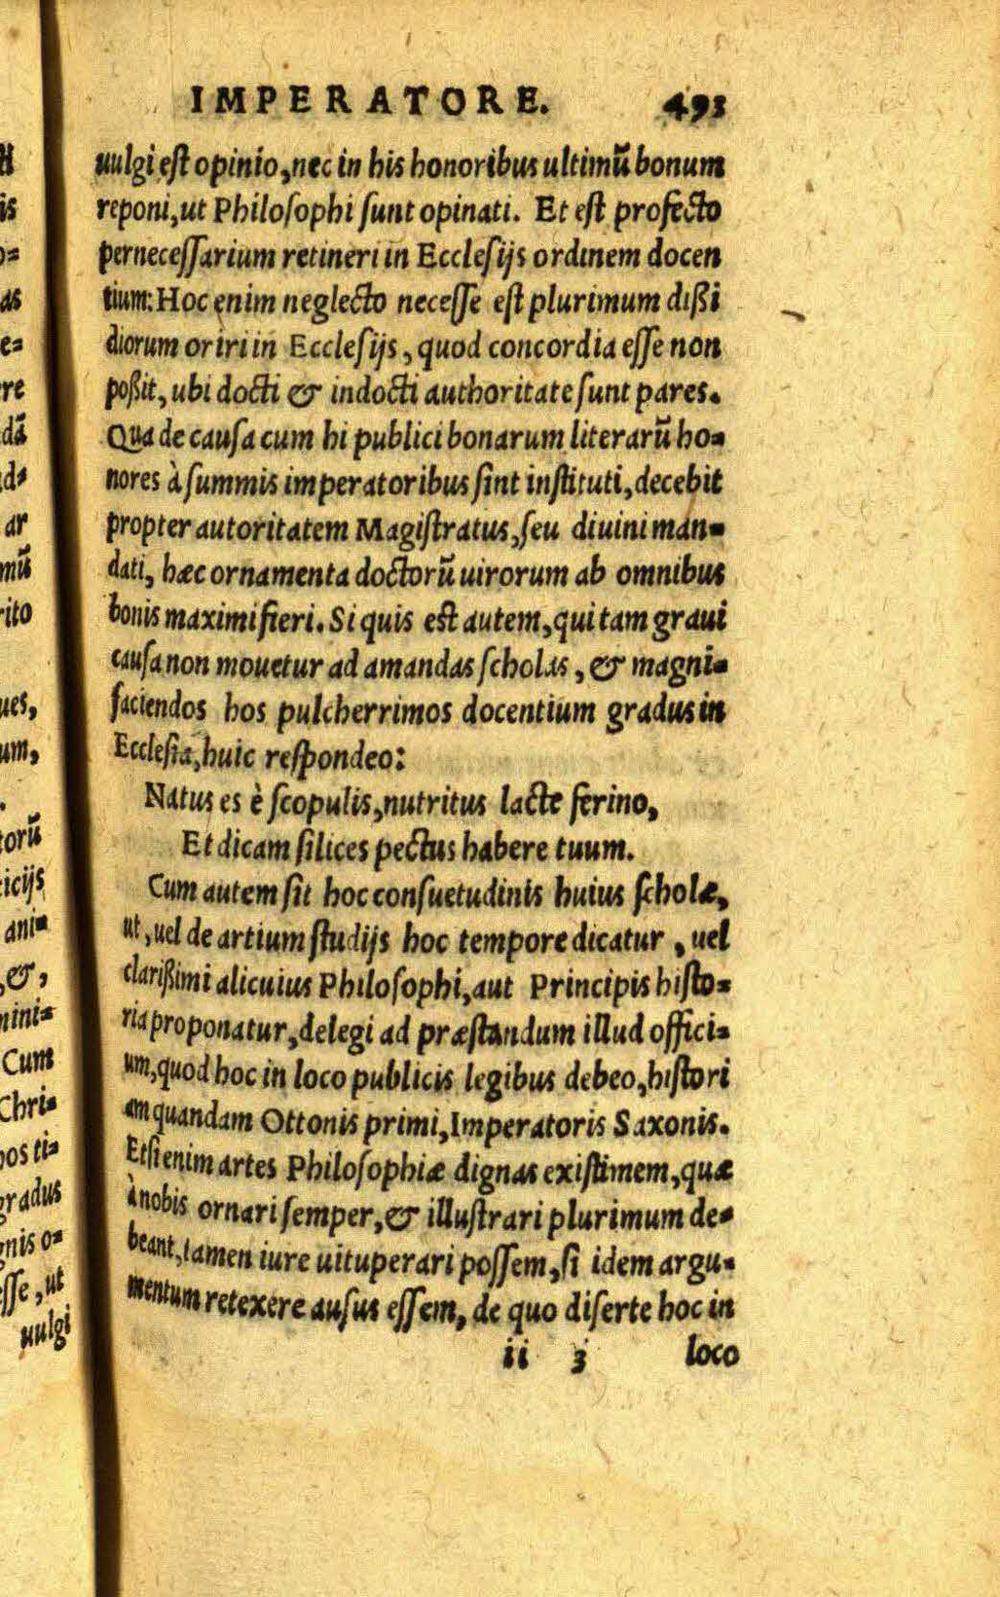 IMPERATORE. 493
uulgi eſt opinio, nec in his honoribus ultimũ bonum
reponi, ut Philoſophi ſunt opinati. Et eſt profecto
perneceſſarium retineri in Eccleſijs ordinem docen
tium: Hoc enim neglecto neceſſe eſt plurimum dißi
diorum oriri in Eccleſijs, quod concordia eſſe non
poßit, ubi docti & indocti authoritate ſunt pares.
Qua de cauſa cum hi publici bonarum literarũ ho=
nores à ſummis imperatoribus ſint inſtituti, decebit
propter autoritatem Magiſtratus, ſeu diuini man=
dati, hæc ornamenta doctorũ uirorum ab omnibus
bonis maximi fieri. Si quis eſt autem, qui tam graui
cauſa non mouetur ad amandas ſcholas, & magni=
faciendos hos pulcherrimos docentium gradus in
Eccleſia, huic reſpondeo:
Natus es è ſcopulis, nutritus lacte ferino,
Et dicam ſilices pectus habere tuum.
Cum autem ſit hoc conſuetudinis huius ſcholæ,
ut, uel de artium ſtudijs hoc tempore dicatur, uel
clarißimi alicuius Philoſophi, aut Principis hiſto=
ria proponatur, delegi ad præſtandum illud offici=
um, quod hoc in loco publicis legibus debeo, hiſtori
am quandam Ottonis primi, Imperatoris Saxonis.
Etſi enim artes Philoſophiæ dignas exiſtimem, quæ
à nobis ornari ſemper, & illuſtrari plurimum de=
beant, tamen iure uituperari poſſem, ſi idem argu=
mentum retexere auſus eſſem, de quo diſerte hoc in
ii 3 loco